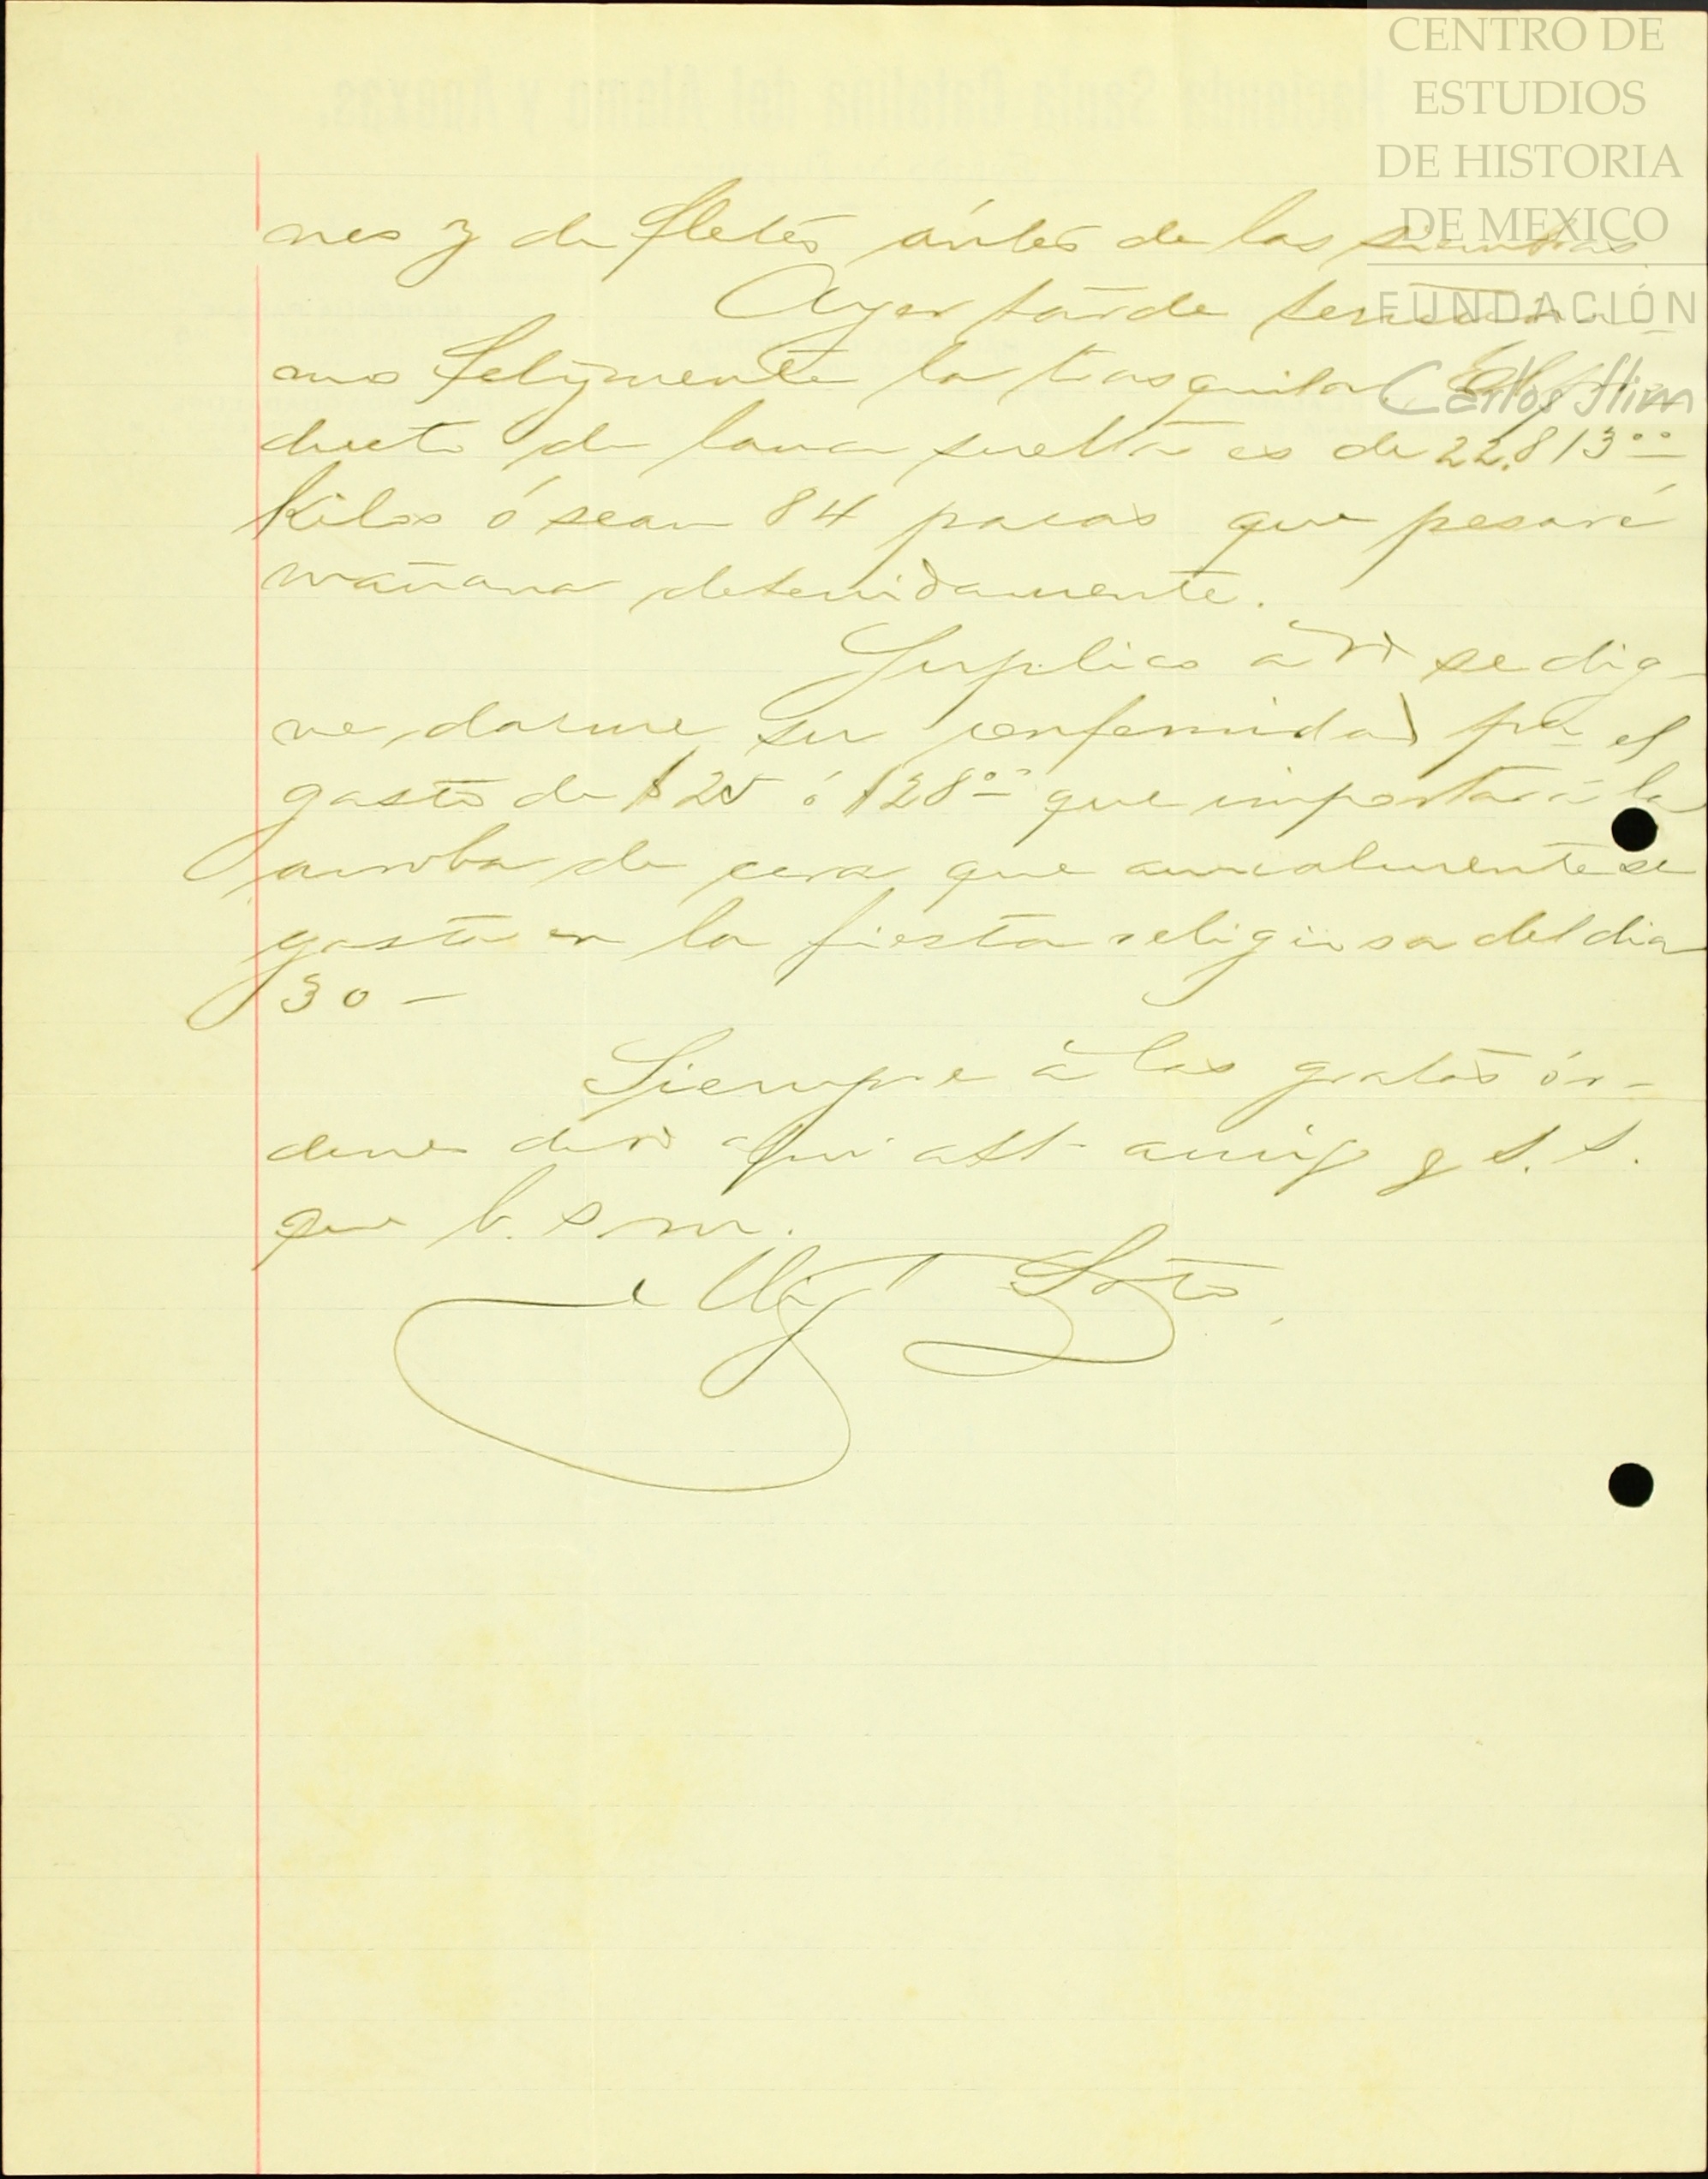 CENTRO DE
ESTUDIOS
DE HISTORIA
DE MEXICO
FUNDACIÓN
Carlos Slim
nes y de fletes ántes de las siembras
Ayer tarde termina-
mos felizmente la trasquila. El pro-
ducto de lana suelta es de 22.813°°
Kilos ó sean 84 pacas que pesaré
mañana detenidamente.
Suplico a Vd se dig-
ne darme su conformidad pa el
gasto de $25 ó $28°° que importará la
arroba de cera que anualmente se
gasta en la fiesta religiosa del dia
30 —
Siempre à las gratas ór-
denes de Vd afmo att amigo y S. S.
que b. s m.
Migl Soto